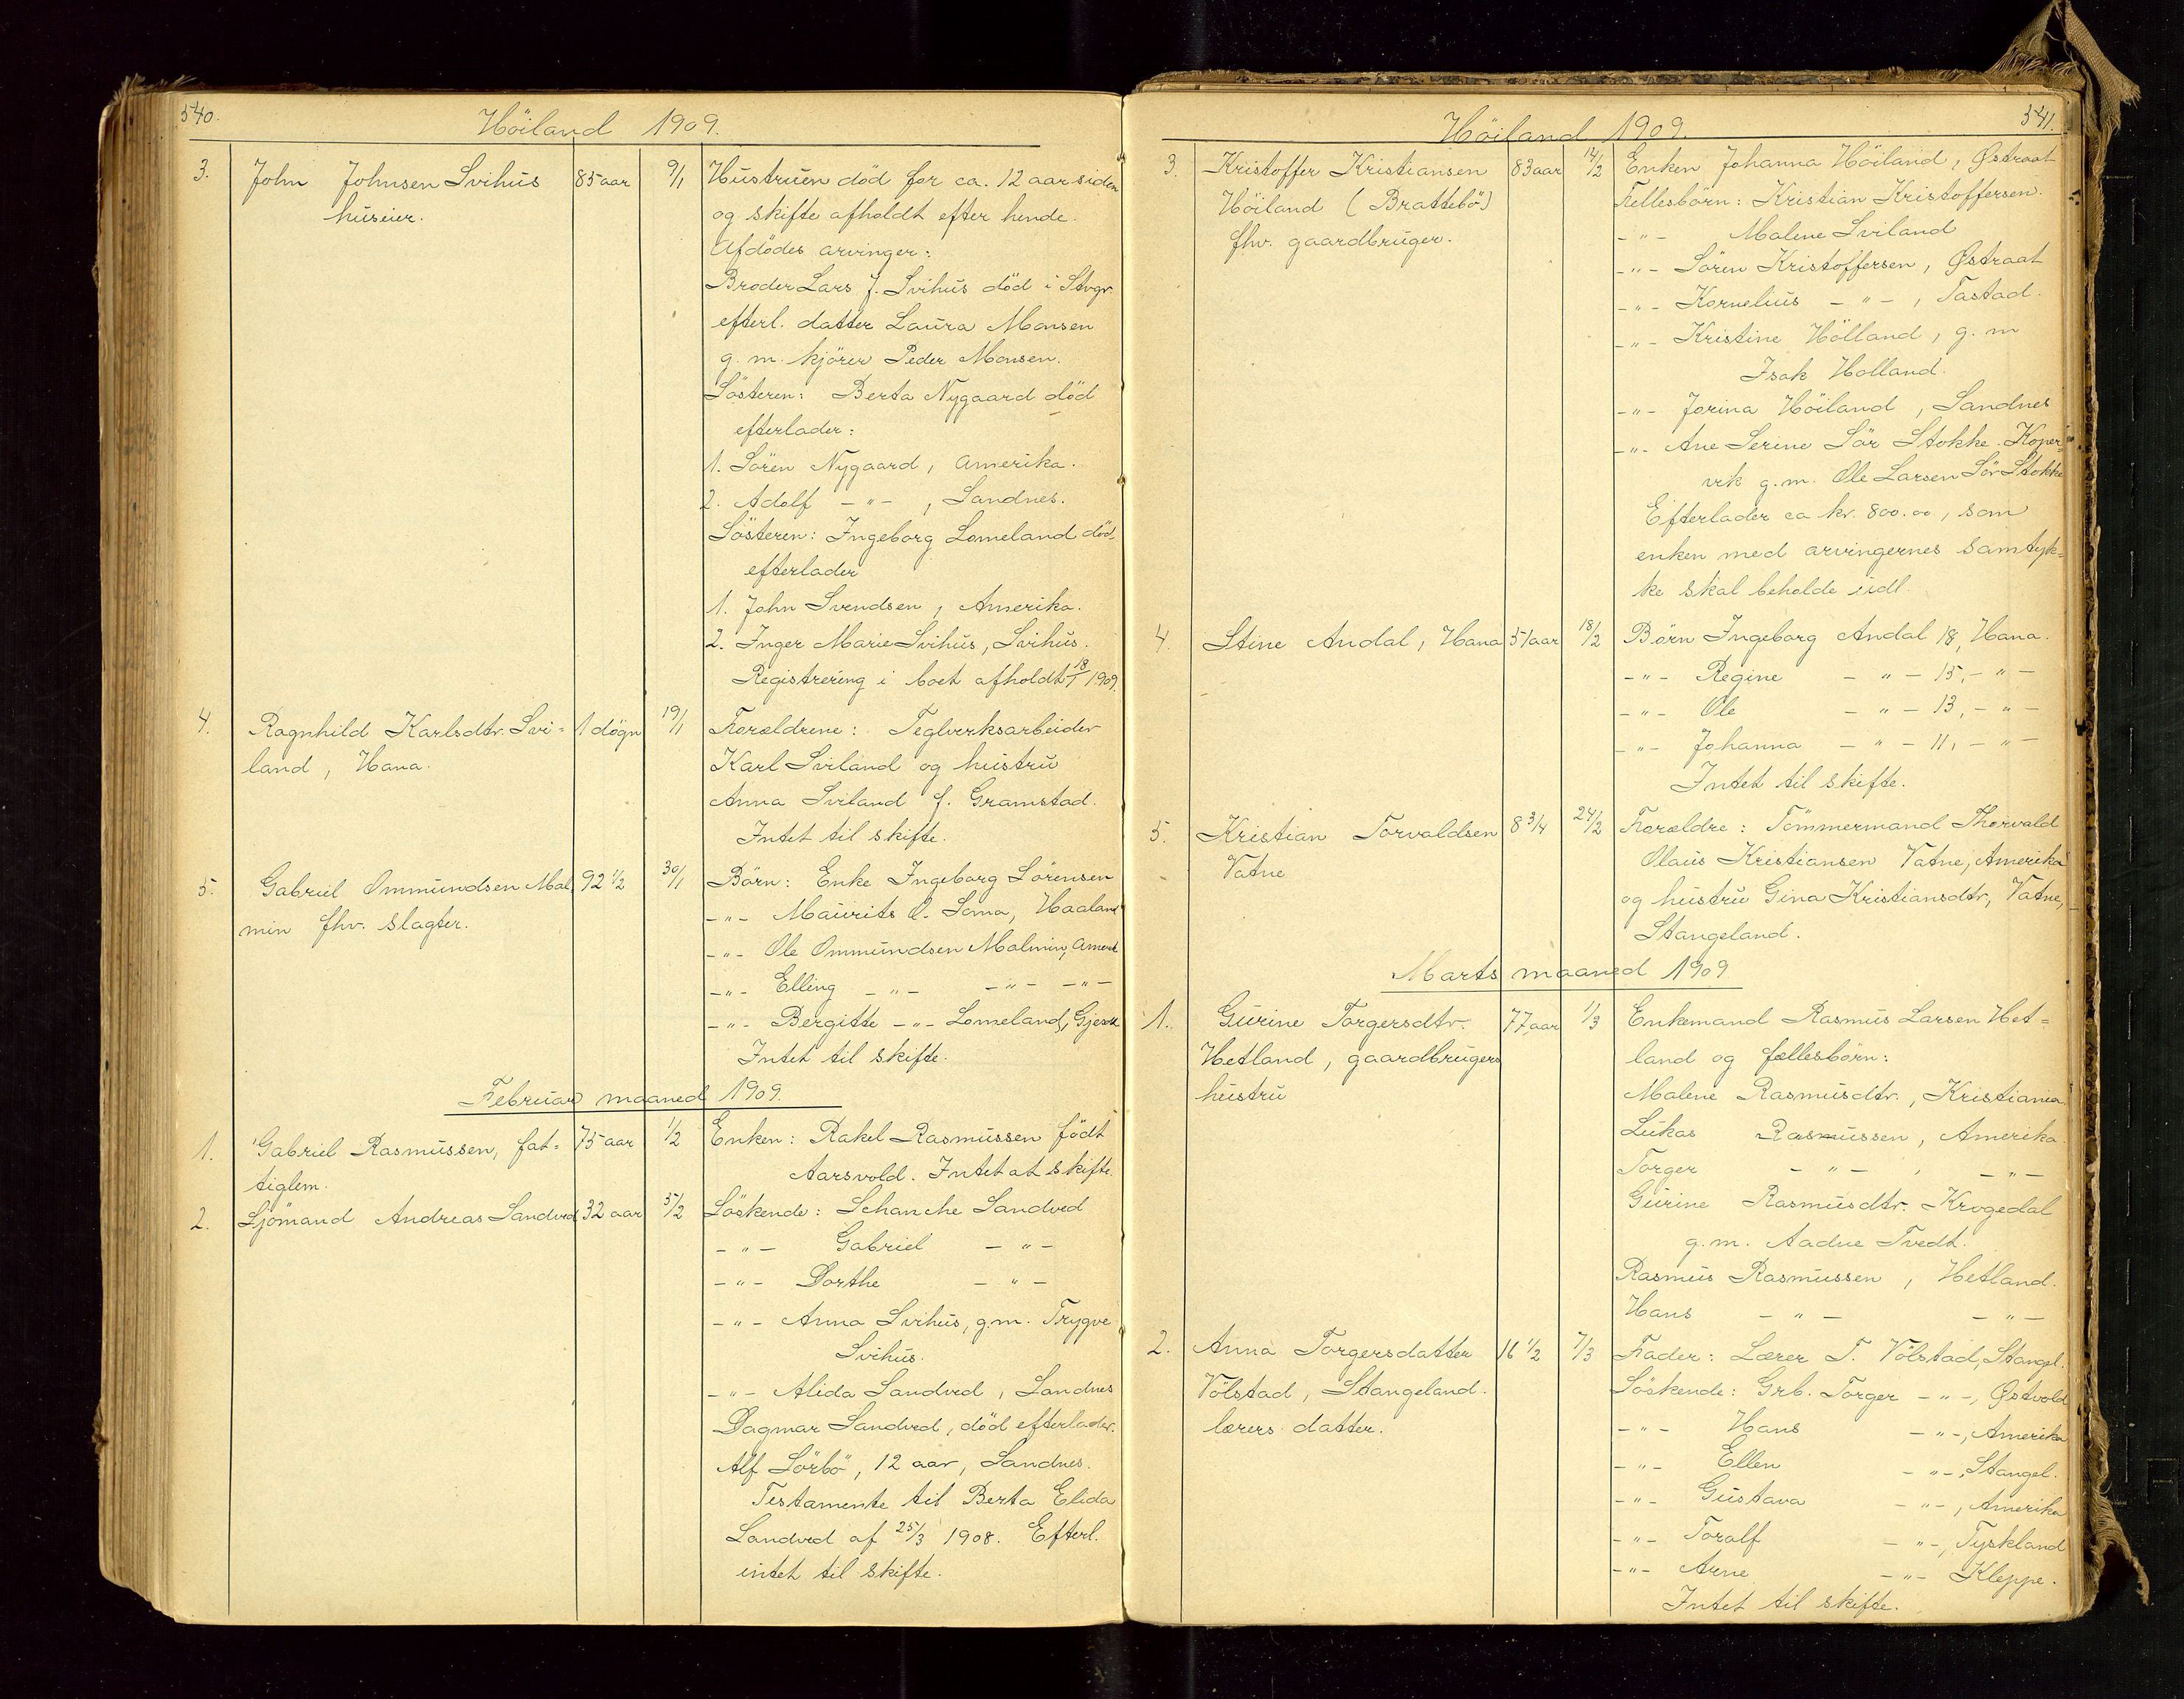 540.
Höiland 1909.
3. John Johnsen Svihus 85 aar 9/1 Hustruen död for ca. 12 aar siden
huseier. og skifte afholdt efter hende.
Afdödes arvinger:
Broder Lars J. Svihus död i Stvgr.
efterl. datter Laura Monsen
g. m. kjörer Peder Monsen.
Sösteren: Berta Nygaard död
efterlader:
1. Sören Nygaard, Amerika.
2. Adolf - " - , Sandnes.
Sösteren: Ingeborg Lomeland död,
efterlader
1. John Svendsen, Amerika.
2. Inger Marie Svihus, Svihus.
Registrering i boet afholdt 18/1 1909.
4. Ragnhild Karlsdtr. Svi= 1 dögn 19/1 Forældrene: Teglverksarbeider
land, Hana. Karl Sviland og hustru
Anna Sviland f. Gramstad.
Intet til skifte.
5. Gabriel Ommundsen Mal 92 1/2 30/1 Börn: Enke Ingeborg Sörensen
min fhv. slagter. - " - Maurits O. Soma, Haaland
- " - Ole Ommundsen Malmin, Amerk
- " - Elling - " - - " - - " -
- " - Bergitte - " - Lomeland, Gjesd
Intet til skifte.
Februar maaned 1909.
1. Gabriel Rasmussen, fat= 75 aar 1/2 Enken: Rakel Rasmussen født
tiglem. Aarsvold. Intet at skifte.
2. Sjömand Andreas Sandved 32 aar 5/2 Söskende: Schanche Sandved
- " - Gabriel - " -
- " - Dorthe - " -
- " - Anna Svihus, g.m. Trygve
Svihus.
- " - Alida Sandved, Sandnes
Dagmar Sandved, död efterlader.
Alf Sörbö, 12 aar, Sandnes.
Testamente til Berta Elida
Sandved af 25/3 1908. Efterl.
intet til skifte.
541.
Höiland 1909.
3. Kristoffer Kristiansen 83 aar 14/2 Enken Johanna Höiland, Østraat
Höiland (Brattebö) Fellesbörn: Kristian Kristoffersen.
fhv. gaardbruger. - " - Malene Sviland
- " - Sören Kristoffersen, Østraat
- " - Kornelius - " - , Tastad.
- " - Kristine Hölland, g. m
Isak Holland.
- " - Jorina Höiland, Sandnes
- " - Ane Serine Sör Stokke. Koper=
vik g.m. Ole Larsen Sör Stokke
Efterlader ca kr. 800.00, som
enken med arvingernes samtyk=
ke skal beholde udl.
4. Stine Andal, Hana 51 aar 18/2 Börn Ingeborg Andal 18, Hana.
- " - Regine - " - 15, - " -
- " - Ole - " - 13, - " -
- " - Johanna - " - 11, - " -
Intet til skifte.
5. Kristian Torvaldsen 8 3/4 24/2 Forældre: Tömmermand Thorvald
Vatne Olaus Kristiansen Vatne, Amerika
og hustru Gina Kristiansdtr, Vatne,
Stangeland.
Marts maaned 1909
1. Gurine Torgersdtr. 77 aar 1/3 Enkemand Rasmus Larsen Het=
Hetland, gaardbrugers land og fællesbörn:
hustru Malene Rasmusdtr., Kristiania
Lukas Rasmussen, Amerika.
Torger - " - , - " -
Gurine Rasmusdtr. Krogedal
g.m. Aadne Tvedt.
Rasmus Rasmussen, Hetland.
Hans - " - - " -
2. Anna Torgersdatter 16 1/2 7/3 Fader: Lærer T. Völstad, Stangel.
Völstad, Stangeland. Söskende: Grb. Torger - " -, Østvold
lærers datter. - " - Hans - " -, Amerika
- " - Ellen - " -, Stangel.
- " - Gustava - " -, Amerika
- " - Toralf - " -, Tyskland
- " - Arne - " - Kleppe.
Intet til skifte.